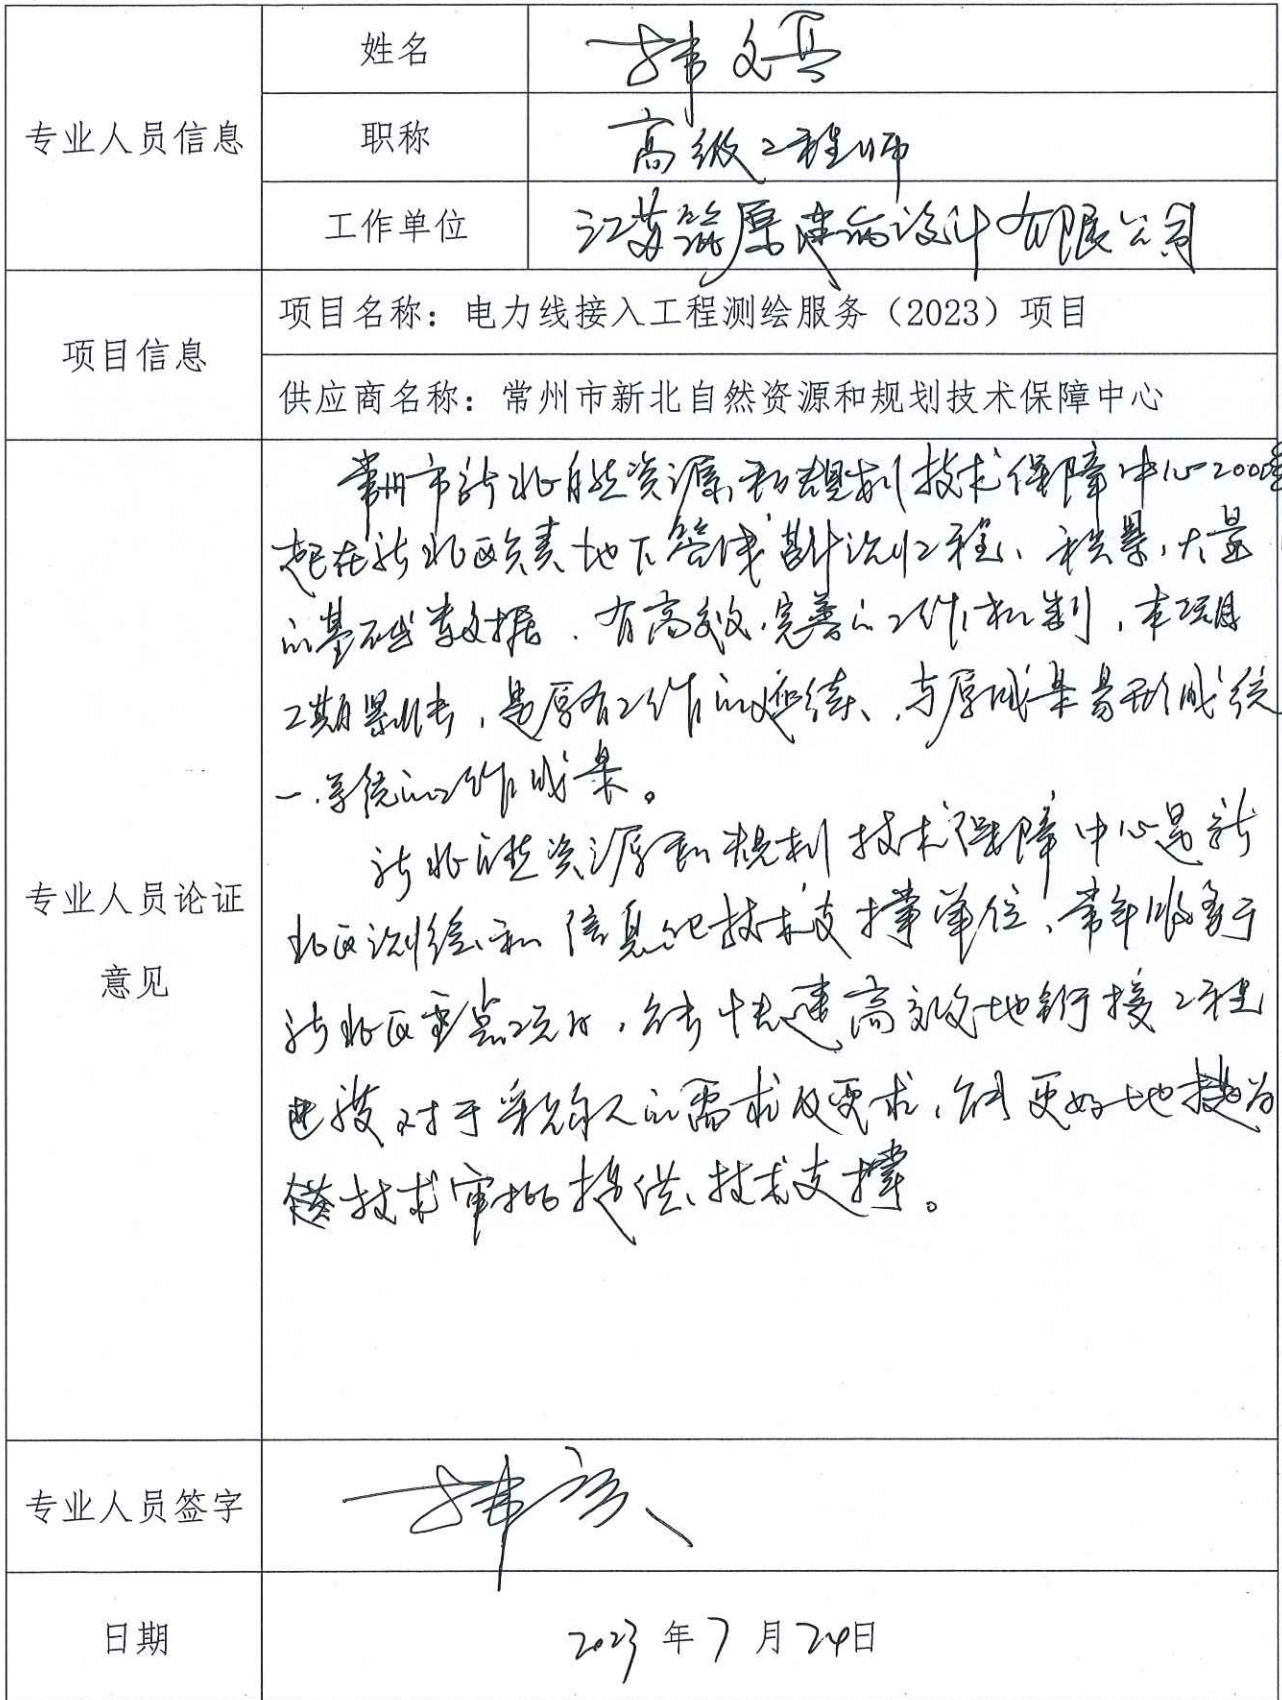 专业人员信息
姓名
韩文
职称
高级工程师
工作单位
江苏筑原建筑设计有限公司
项目信息
项目名称：电力线接入工程测绘服务（2023）项目
供应商名称：常州市新北自然资源和规划技术保障中心
专业人员论证
意见
常州市新北自然资源和规划技术保障中心200年
起在新北区负责地下管线勘测工程、积累，大量
的基础数据．有高效，完善的工作机制，本项目
工期紧，是原有工作的延续、，与原成果易形成统
一．系统的工作成果。
新北自然资源和规划技术保障中心是新
北区测绘和信息化技术支撑单位、常年服务于
新北区重点项目，能快速高效地衔接工程
对于采购人的需求及要求，能更好地为
技术审批提供技术支撑。
专业人员签字
韩
日期
2023年7月24日